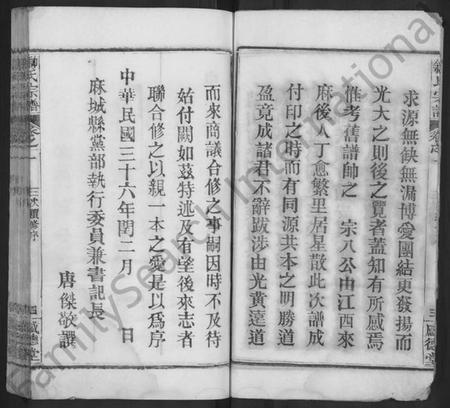 求源無缺無漏博愛團結更發揚而
光大之則後之覽者蓋知有所感焉
惟考舊譜帥之 宗八公由江西來
麻後人丁愈繁里居星散此次譜成
付印之時而有同源共本之明勝道
盈竟成諸君不辭跋涉由光黃遠道
而來商議合修之事嗣因時不及待
姑付闕如茲特述及有望後來志者
聯合修之以親一本之愛是以為序
中華民國三十六年閏二月 日
麻城縣黨部執行委員兼書記長
唐傑敬譔
氏宗譜
三次續修序
四
三
FamilySearch International